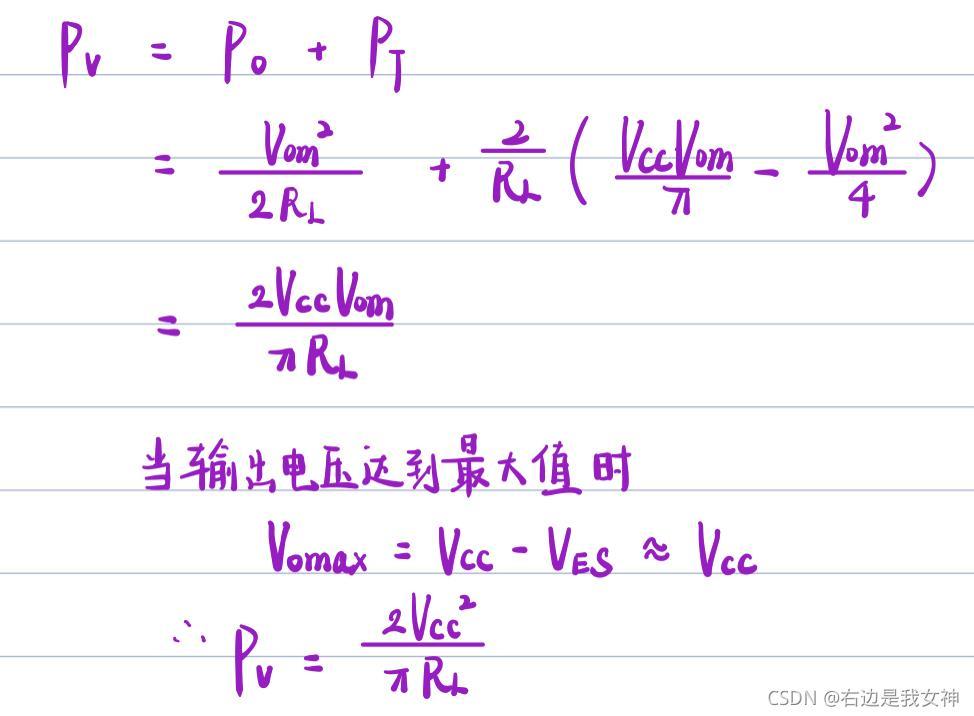 P_V = P_o + P_T
= V_om² / 2R_L + 2/R_L ( V_CC V_om / π − V_om² / 4 )
= 2V_CC V_om / πR_L
当输出电压达到最大值时
V_omax = V_CC - V_ES ≈ V_CC
∴ P_V = 2V_CC² / πR_L
CSDN @右边是我女神